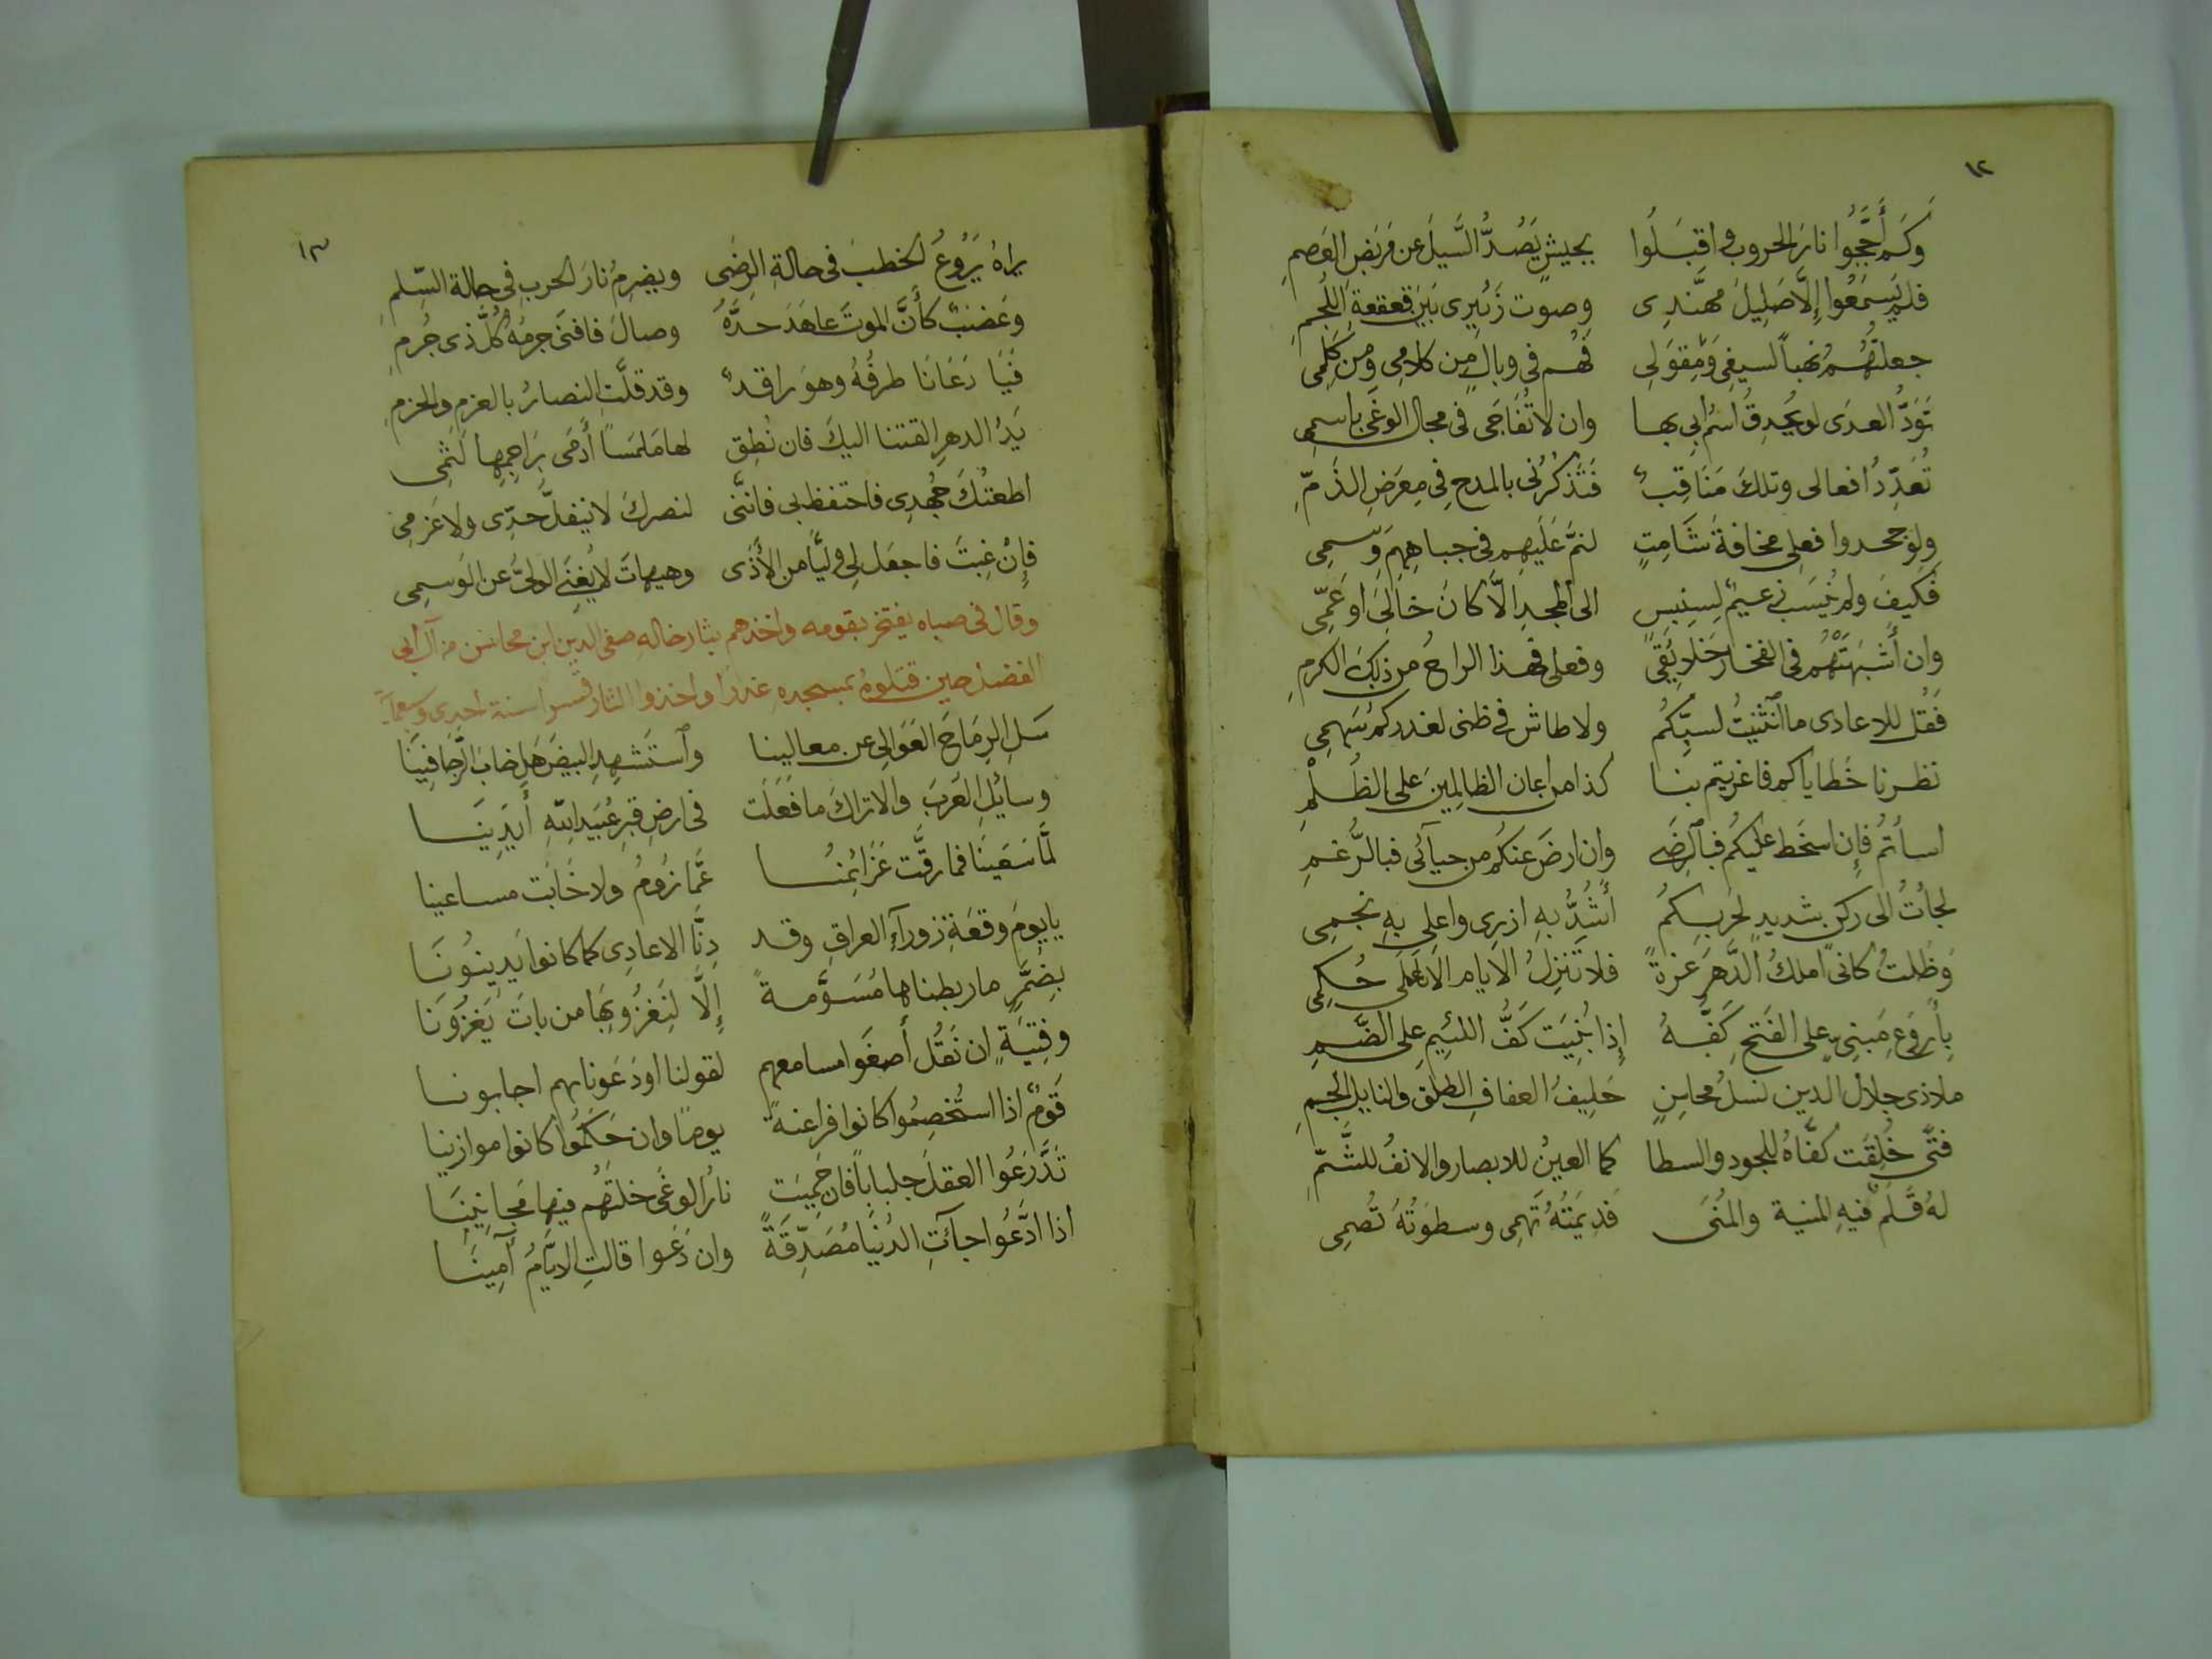 ١٢
وَكَم أَجَّجُوا نارَ الحروب واقبَلُوا بجيشٍ يَصُدُّ السَّيلَ عن مَربَضِ العَصمِ
فلم يَسمَعُوا إلَّا صَلِيلَ مهنَّدِى وصوت زَئيرى بَينَ قعقعةِ اللُجمِ
جعلتُهُمُ نَهباً لسيفى وَمِقوَلِى فَهُم فى وبالٍ مِن كلامِى وَمِن كَلمِى
تَوَدُّ العدَى لو يُحدِقُ اسمُ ابى بها وان لا تُفَاجَى فى مجال الوغَى باسمِى
تُعَدِّدُ افعالى وتلكَ مَنَاقِبٌ فَتَذكُرُنى بالمدحِ فِى مِعرَضِ الذَمِّ
ولو جحدوا فعلى مخافةَ شَامِتٍ لنمَّ عَلَيهِم فى جباهِهِم وَسمِى
فَكَيفَ ولم يُنسَب زعيمٌ لِسِنبِسٍ الى المجدِ الَّا كانَ خَالِىَ او عَمِّى
وان أَشبَهَتهُم فى الفخار خَلايُقى وفعلى فهذا الراحُ من ذلِكَ الكرمِ
فَقُل للاعادى ما انثنيتُ لسبِّكُم ولا طاش فى ظنى لغدركم سَهمِى
نظرنا خَطاياكم فاغريتم بنا كذا من اعان الظالِمِينَ على الظُلْمِ
اسأتُم فإن اسخَط عليكُم فبالرِضَى وان ارضَ عنكُم من حيآئى فبالرُّغمِ
لجأتُ الى ركنٍ شديدٍ لحَربِكُم أَشُدُّ بهِ ازرِى واعلى بِهِ نجمِى
وَظَلتُ كانى املكُ الدَّهرَ عزةً فلا تَنزِلُ الايام الا عَلَى حُكمِى
بِأَروَعَ مَبنِىٍّ على الفَتحِ كَفُّهُ إذا بُنِيَت كَفُّ اللئيمِ على الضَّمِ
ملاذى جلالُ الدين نسلُ محاسِنٍ حَلِيفُ العفافِ الطلقِ والنايل الجمِ
فتًى خُلِقَت كفَّاهُ للجود والسطا كما العينُ للابصار والانفُ للشَّمِّ
لهُ قَلَمٌ فيهِ المنية والمُنَى فديمَتُهُ تَهمِى وسطوَتُهُ تُصمِى
١٣
يراهُ يَرُوعُ الخطبَ فى حالةِ الرِضَى ويضرِمُ نارَ الحربِ فى حالة السِّلمِ
وعَضبٌ كأَنَّ الموتَ عاهَدَ حدَّهُ وصالَ فافنَى جرمُهُ كُلَّ ذى جُرمِ
فَيَا رَعَانَا طرفُهُ وهوَ راقدٌ وقد قلَّتِ النصارُ بالعزمِ والحزمِ
يَدُ الدهرِ القتنا اليكَ فان نُطِق لها مَلمَسًا أَدمَى بَرَاجِمِها لَثمِى
اطعتُكَ جُهدِى فاحتفظ بى فانَّنى لنصرِكَ لا ينفلُّ حَدِّى ولا عَزمِى
فإنْ غِبتَ فاجعَل لى وليًّا من الأَذَى وهيهاتَ لا يُغنِى الولىُّ عن الوَسمِى
وقال فى صباه يفتخر بقومه واخذهم بثار خاله صفى الدين ابن محاسن من آل ابى
الفضل حين قتلوهُ بمسجدهِ غدرًا واخذوا الثار قسرا سنة احدى وسبعماية
سَلِ الرِمَاحَ العَوَالى عن معالينا واستَشهِدِ البيضَ هَل خابَ الرَّجَا فِينَا
وسائِلِ العَربَ والاتراكَ ما فَعَلَت فى ارضِ قبرِ عُبَيدِ اللهِ أَيدِينَا
لَمَّا سَعَينَا فما رقَّت عَزَائِمُنَا عَمَّا نرُومُ ولا خَابَت مساعينا
يا يومَ وقعَةِ زورآءِ العراقِ وقد دِنَّا الاعادِى كما كانوا يَدِينُونَا
بِضُمَّرٍ ما ربطناها مُسَوَّمةً إلَّا لِنَغزُو بِهَا من باتَ يَغزُونَا
وفِتيَةٍ ان نَقُل أَصغَوا مسامعهم لقولنا او دَعَوناهم اجابونا
قَومٌ اذا استُخصِمُوا كانوا فراعنةً يومًا وان حَكَّمُوا كانوا موازينا
تَدَّرَعُوا العقلَ جلباباً فان حَمِيَت نارُ الوغَى خلتَهُم فيها مَجانِينَا
اذا ادَّعَوا جآئَتِ الدُنيَا مُصَدِّقَةً وان دَعَوا قالتِ الايَّامُ آمِينَا